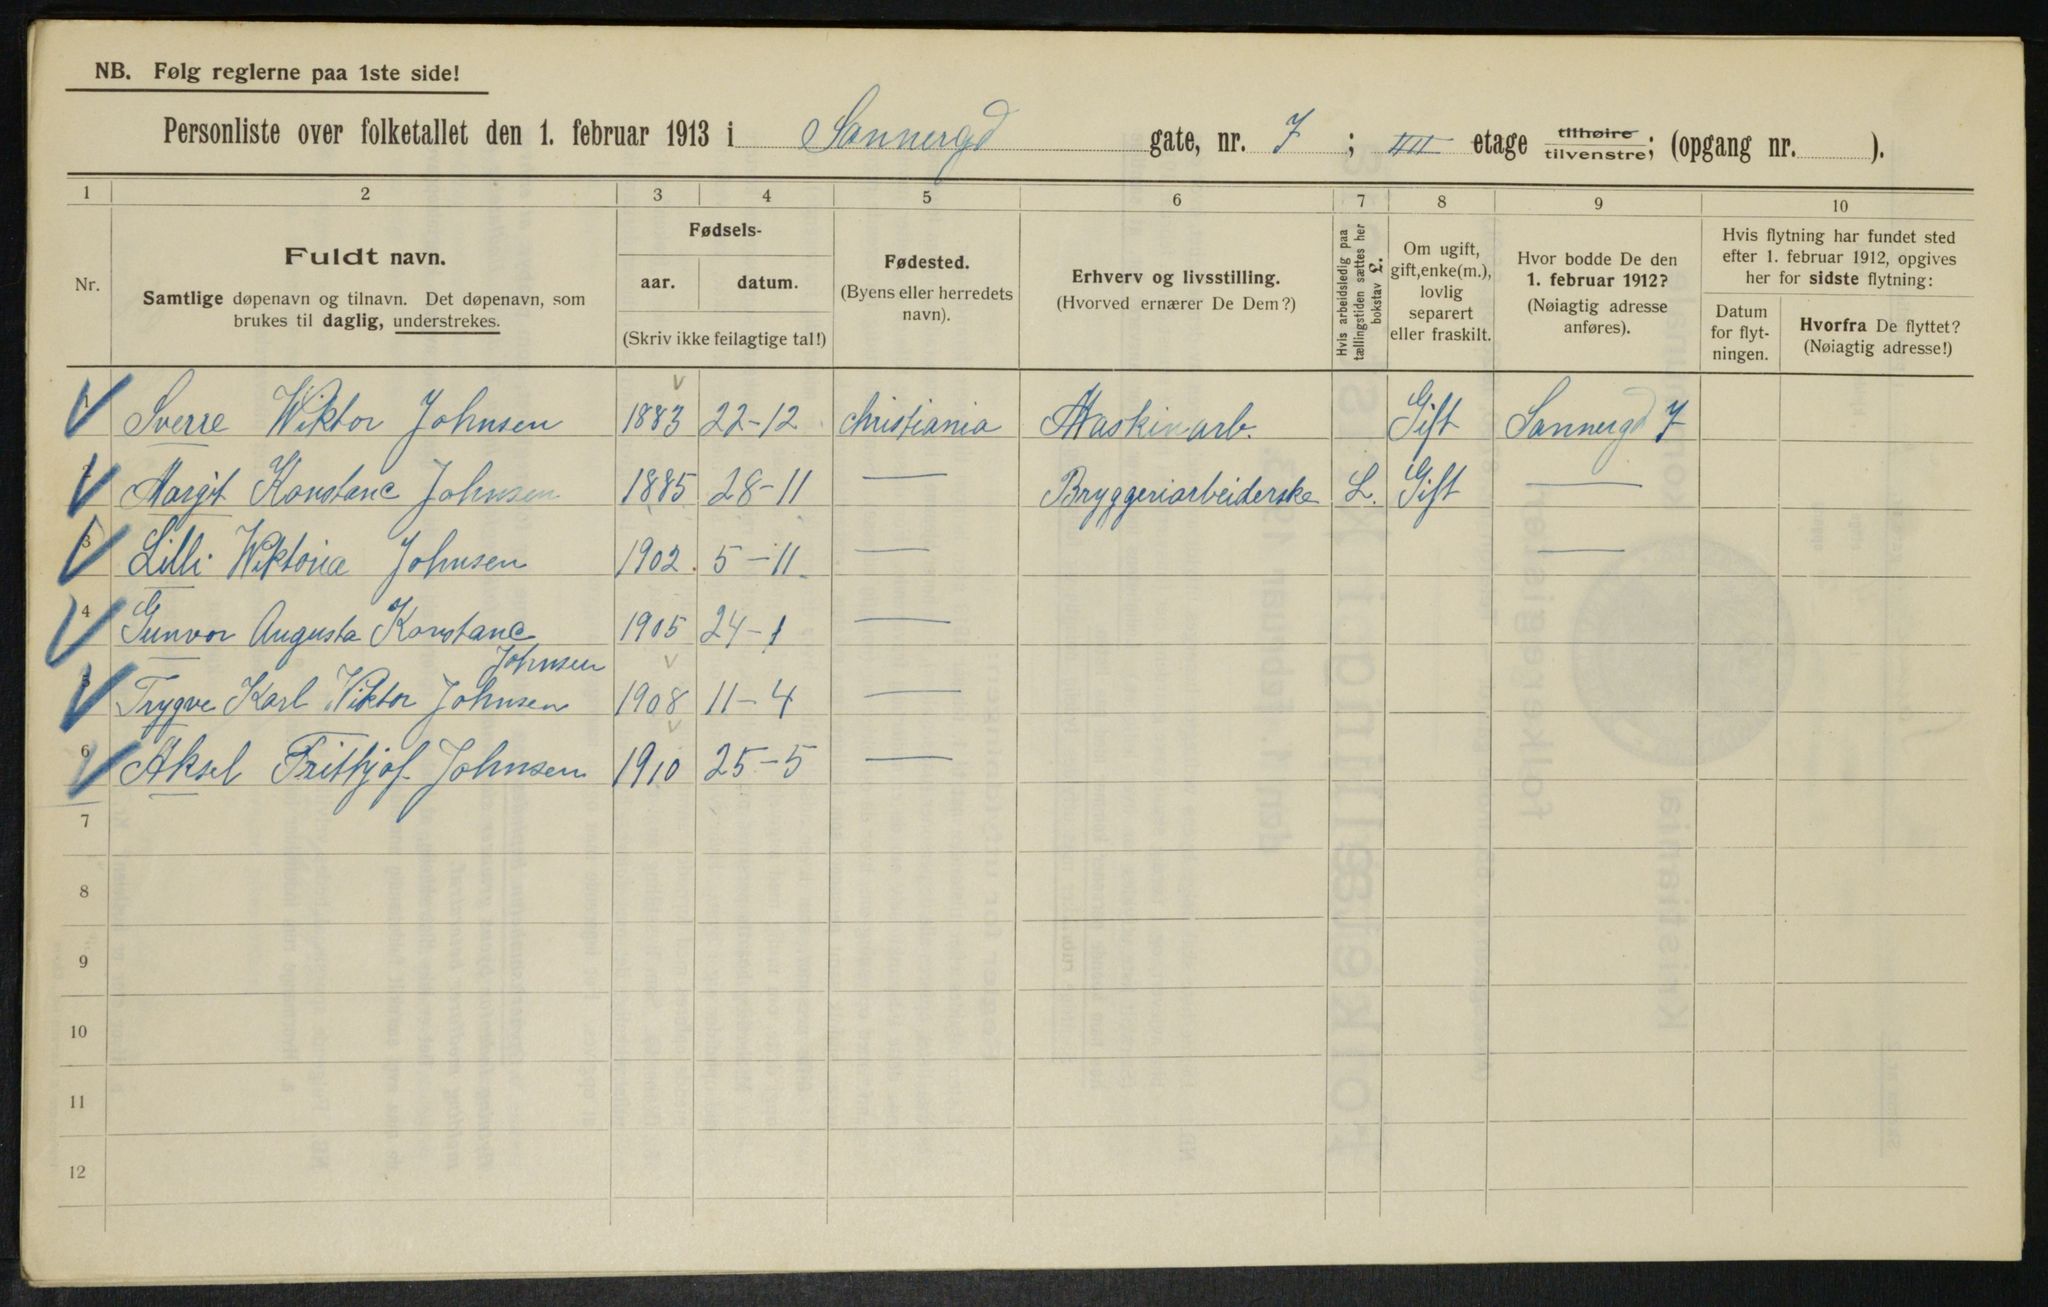 NB. Følg reglerne paa 1ste side!
Personliste over folketallet den 1. februar 1913 i Sannergd gate, nr. 7; IIII etage tilhøire tilvenstre; (opgang nr. ).
1 2 3 4 5 6 7 8 9 10
Nr.
Fuldt navn.
Samtlige døpenavn og tilnavn. Det døpenavn, som
brukes til daglig, understrekes.
Fødsels-
aar. datum.
(Skriv ikke feilagtige tal!)
Fødested.
(Byens eller herredets
navn).
Erhverv og livsstilling.
(Hvorved ernærer De Dem?)
Hvis arbeidsledig paa
tællingstiden sættes her
bokstav L.
Om ugift,
gift, enke(m.),
lovlig
separert
eller fraskilt.
Hvor bodde De den
1. februar 1912?
(Nøiagtig adresse
anføres).
Hvis flytning har fundet sted
efter 1. februar 1912, opgives
her for sidste flytning:
Datum
for flyt-
ningen.
Hvorfra De flyttet?
(Nøiagtig adresse!)
1 Sverre Wiktor Johnsen 1883 22-12 Christiania Maskinarb. Gift Sannergd 7
2 Margit Konstanc Johnsen 1885 28-11 — Bryggeriarbeiderske L. Gift —
3 Lilli Wiktoria Johnsen 1902. 5-11. — —
4 Gunvor Augusta Konstanc 1905 24-1 —
Johnsen
5 Trygve Karl Viktor Johnsen 1908 11-4 —
6 Aksel Fritthjof Johnsen 1910 25-5 —
7
8
9
10
11
12